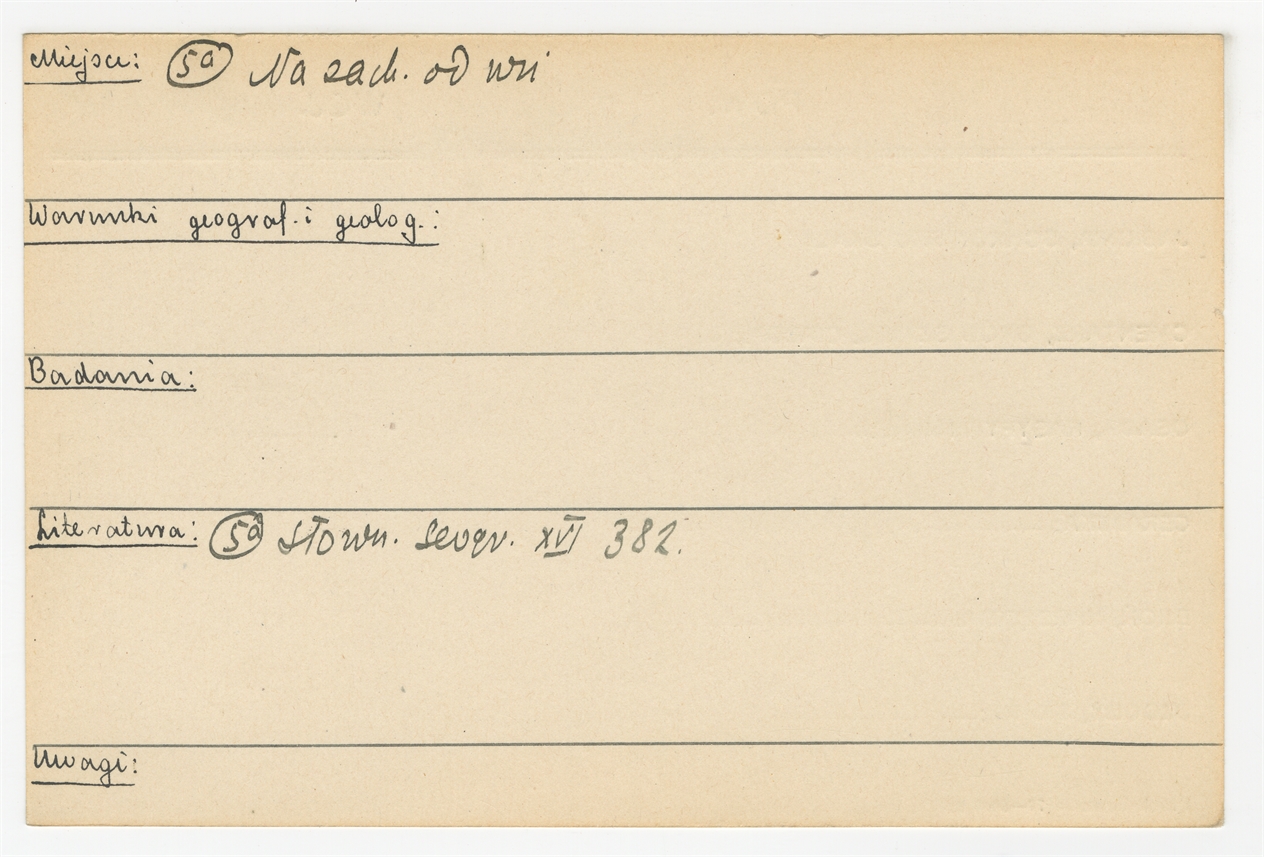 Miejsce: 5a Na zach. od wsi
Warunki geograf. i geolog.:
Badania:
Literatura: 5a Słown. Geogr. XVI 382.
Uwagi: